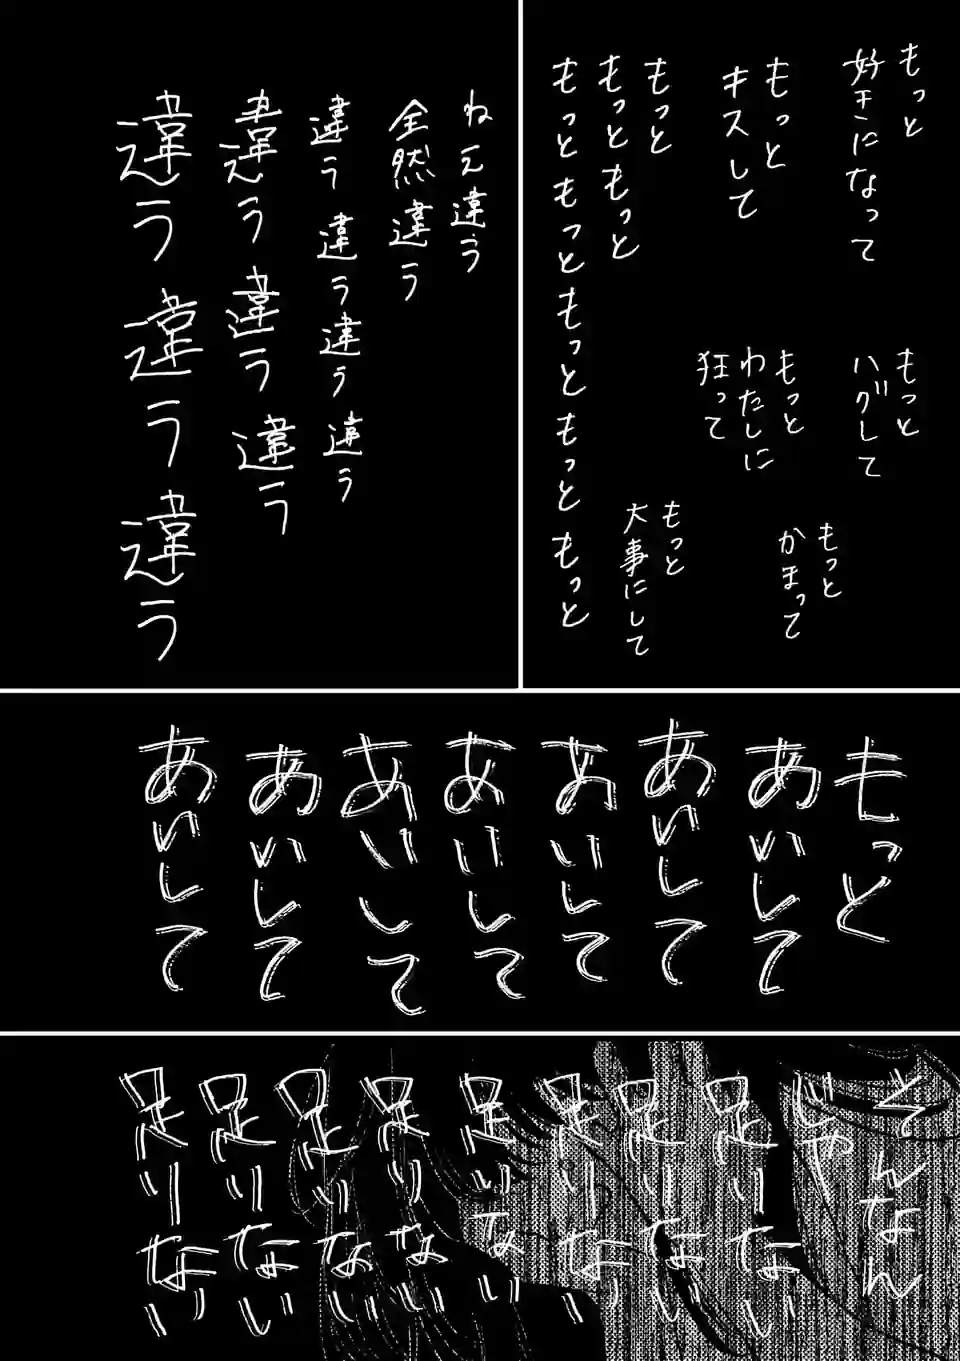 もっと
好きになって
もっと
キスして
もっと
ハグして
もっと
わたしに
狂って
もっと
かまって
もっと
大事にして
もっと
もっともっと
もっともっともっともっともっと
ねえ違う
全然違う
違う違う違う違う
違う違う違う
違う違う違う
もっと
あいして
あいして
あいして
あいして
あいして
あいして
あいして
そんなん
じゃ
足りない
足りない
足りない
足りない
足りない
足りない
足りない
足りない